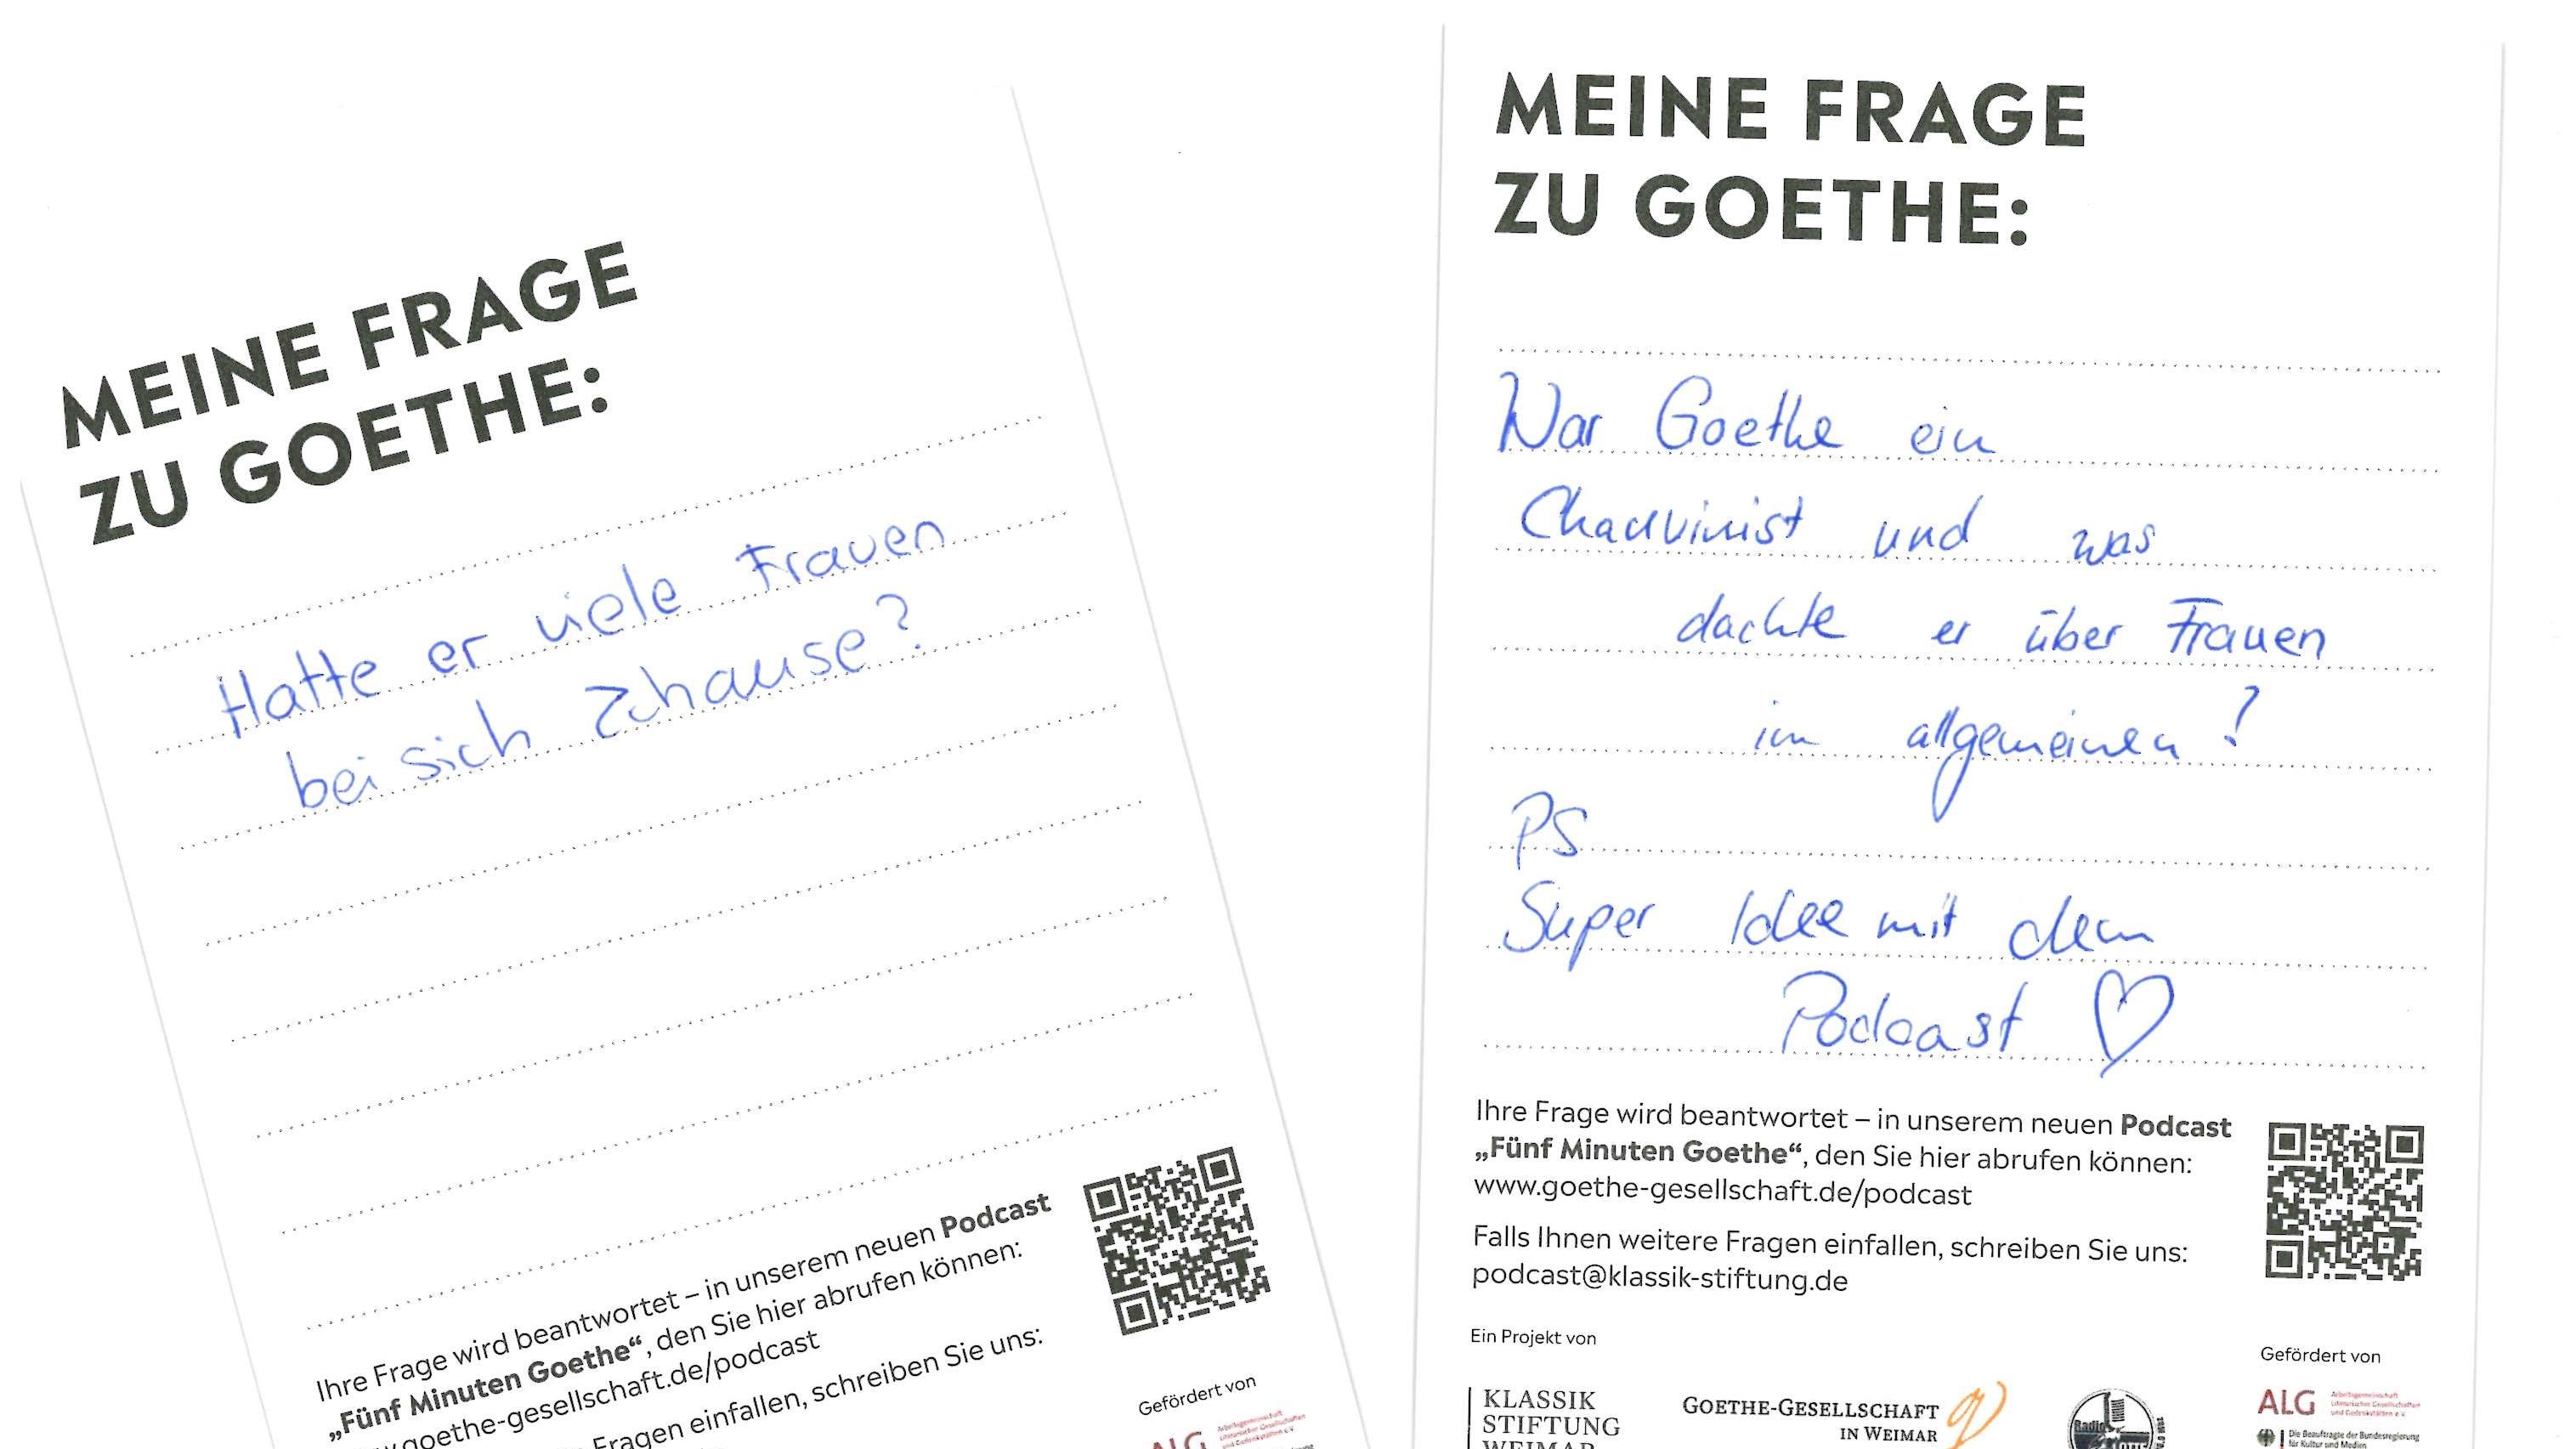 MEINE FRAGE
ZU GOETHE:
Hatte er viele Frauen
bei sich Zuhause?
Ihre Frage wird beantwortet – in unserem neuen Podcast
„Fünf Minuten Goethe“, den Sie hier abrufen können:
goethe-gesellschaft.de/podcast
Fragen einfallen, schreiben Sie uns:
Gefördert von
ALG
MEINE FRAGE
ZU GOETHE:
War Goethe ein
Chauvinist und was
dachte er über Frauen
im allgemeinen?
PS
Super Idee mit dem
Podcast ♡
Ihre Frage wird beantwortet – in unserem neuen Podcast
„Fünf Minuten Goethe“, den Sie hier abrufen können:
www.goethe-gesellschaft.de/podcast
Falls Ihnen weitere Fragen einfallen, schreiben Sie uns:
podcast@klassik-stiftung.de
Ein Projekt von
Gefördert von
KLASSIK
STIFTUNG
WEIMAR
GOETHE-GESELLSCHAFT
IN WEIMAR
Radio
ALG
Arbeitsgemeinschaft
Literarischer Gesellschaften
und Gedenkstätten e.V.
Die Beauftragte der Bundesregierung
für Kultur und Medien